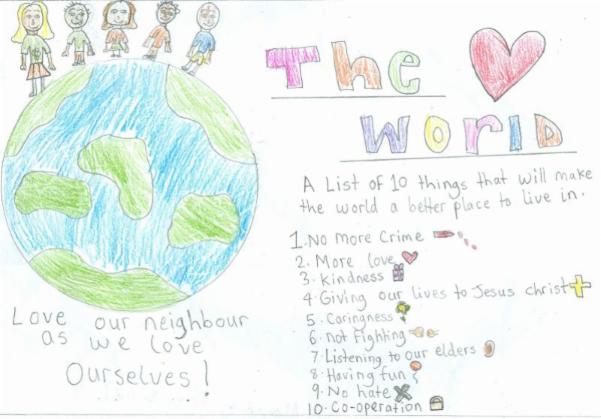 The
World
A List of 10 things that will make
the world a better place to live in.
1. No more Crime
2. More love
3. Kindness
4. Giving our lives to Jesus christ
5. Caringness
6. not Fighting
7. Listening to our elders
8. Having fun
9. No hate
10. Co-operation
Love our neighbour
as we love
Ourselves!